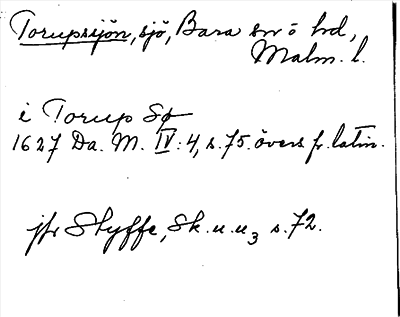 Torupssjön, sjö, Bara sn o hd,
Malm. l.
i Torup Sø
1627 Da. M. IV: 4, s. 75. övers fr. latin.
jfr Styffe, Sk. u. u3 s. 72.